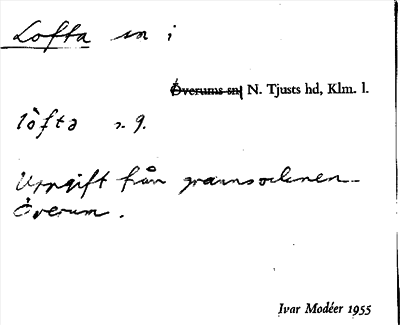 Lofta sn i
Överums sn, N. Tjusts hd, Klm. l.
lòftə n. g.
Uppgift från grannsocknen
Överum.
Ivar Modéer 1955